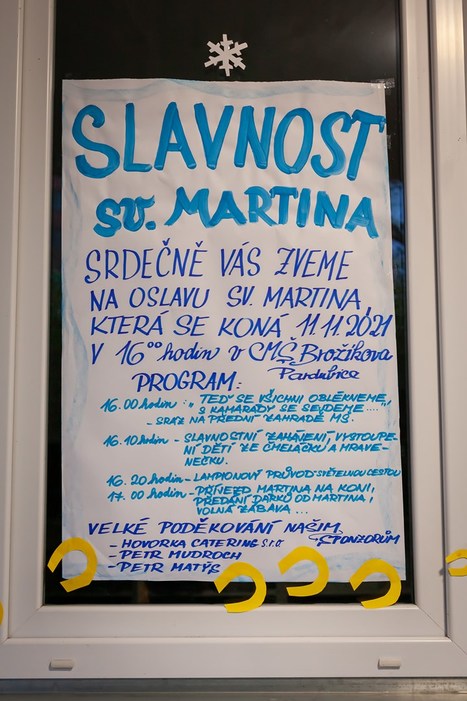 SLAVNOST
SV. MARTINA
SRDEČNĚ VÁS ZVEME
NA OSLAVU SV. MARTINA,
KTERÁ SE KONÁ 11.11.2021
V 16⁰⁰ hodin v CMŠ Brožíkova
Pardubice
PROGRAM:
16.00 hodin: „TEĎ SE VŠICHNI OBLÉKNEME,
S KAMARÁDY SE SEJDEME...."
- SRAZ NA PŘEDNÍ ZAHRADĚ MŠ.
16.10 hodin - SLAVNOSTNÍ ZAHÁJENÍ, VYSTOUPE-
NÍ DĚTÍ ZE ČMELÁČKU A MRAVE-
NEČKU.
16.20 hodin - LAMPIONOVÝ PRŮVOD SVĚTELNOU CESTOU
17.00 hodin - PŘÍJEZD MARTINA NA KONI,
PŘEDÁNÍ DÁRKŮ OD MARTINA,
VOLNÁ ZÁBAVA ...
VELKÉ PODĚKOVÁNÍ NAŠIM
SPONZORŮM
- HOVORKA CATERING s.r.o
- PETR MUDROCH
- PETR MATYS